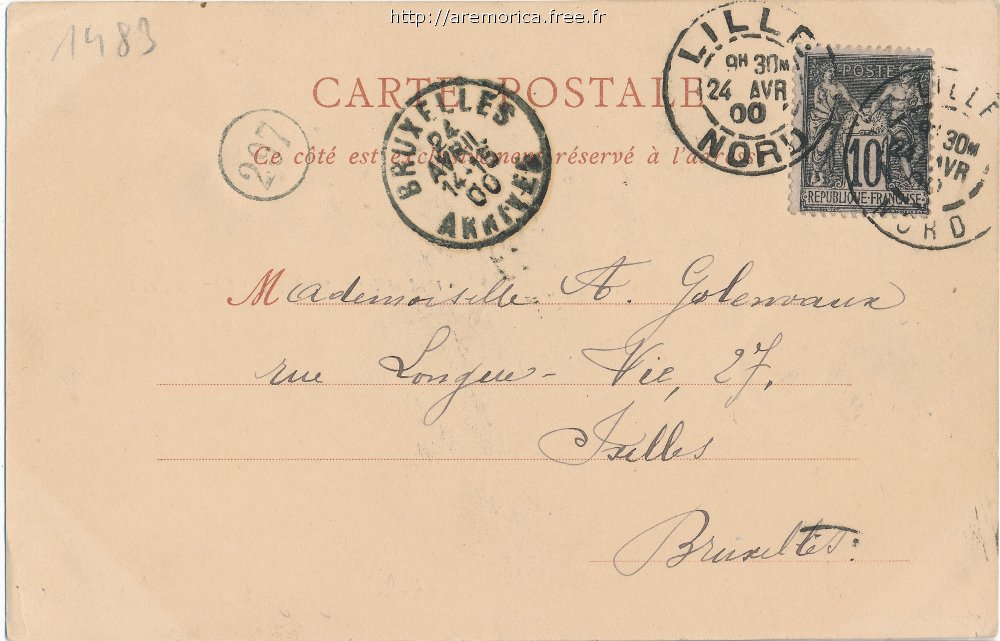 http://aremorica.free.fr
1483
CARTE POSTALE
Ce côté est exclusivement réservé à l'adresse
297
BRUXELLES
24
AVRIL
00
ARRIVÉE
LILLE
9H 30M
24 AVR
00
NORD
POSTE
10
REPUBLIQUE FRANÇAISE
LILLE
30M
24 AVR
NORD
Mademoiselle A. Golenvaux
rue Longue-Vie, 27,
Ixelles
Bruxelles.